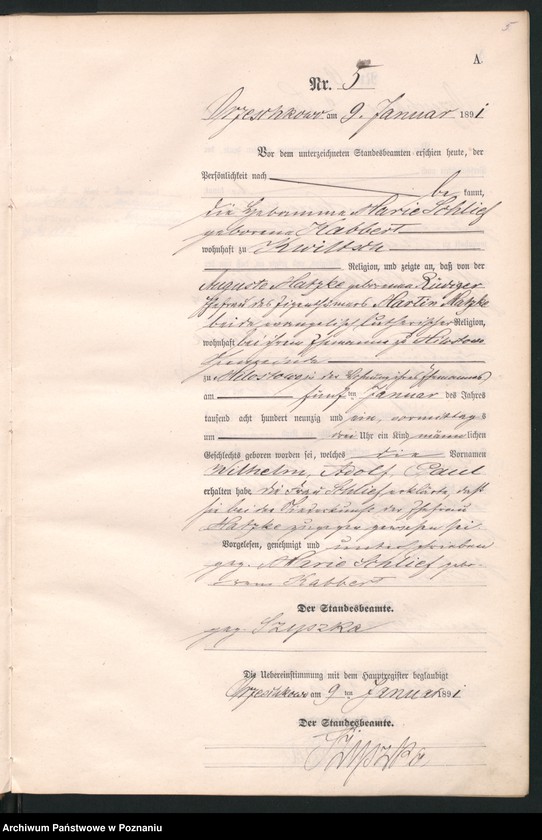 5
A
Nr. 5
Orzeschkowo am 9. Januar 1891
Vor dem unterzeichneten Standesbeamten erschien heute, der
Persönlichkeit nach
be kannt,
die Hebamme Marie Schlief
geborene Kabbert
wohnhaft zu Kwiltsch
Religion, und zeigte an, daß von der
Auguste Matzke geborenen Rüdiger
Ehefrau des Eigenthümers Martin Matzke
beide evangelisch lutherischer Religion,
wohnhaft bei ihrem Ehemanne zu
zu in der Wohnung ihres Ehemannes
am fünften Januar des Jahres
tausend acht hundert neunzig und ein, vormittags
um drei Uhr ein Kind männlichen
Geschlechts geboren worden sei, welches die Vornamen
Wilhelm, Adolf, Paul
erhalten habe. Die Frau Schlief erklärte, daß
sie bei der Niederkunft der Ehefrau
Matzke zugegen gewesen sei.
Vorgelesen, genehmigt und unterschrieben
gez. Marie Schlief gebo-
rene Kabbert
Der Standesbeamte.
gez Szyszka
Die Uebereinstimmung mit dem Hauptregister beglaubigt
Orzeschkowo am 9ten Januar 1891
Der Standesbeamte.
Szyszka
Archiwum Państwowe w Poznaniu